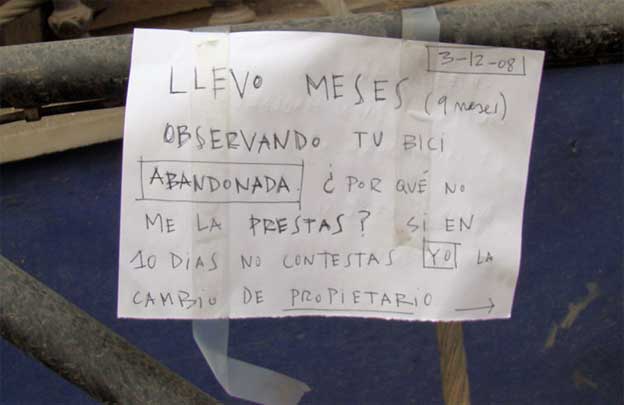 3-12-08
LLEVO MESES (9 meses)
OBSERVANDO TU BICI
ABANDONADA. ¿POR QUÉ NO
ME LA PRESTAS? SI EN
10 DÍAS NO CONTESTAS YO LA
CAMBIO DE PROPIETARIO →